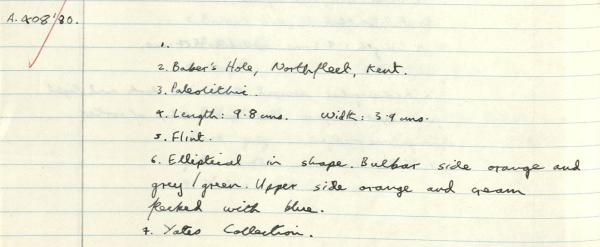 A.408'80.
1.
2. Baber's Hole, Northfleet, Kent.
3. Paleolithic.
4. Length: 9.8 cms. Width: 3.9 cms.
5. Flint.
6. Elliptical in shape. Bulbar side orange and
grey/green. Upper side orange and cream
flecked with blue.
7. Yates Collection.